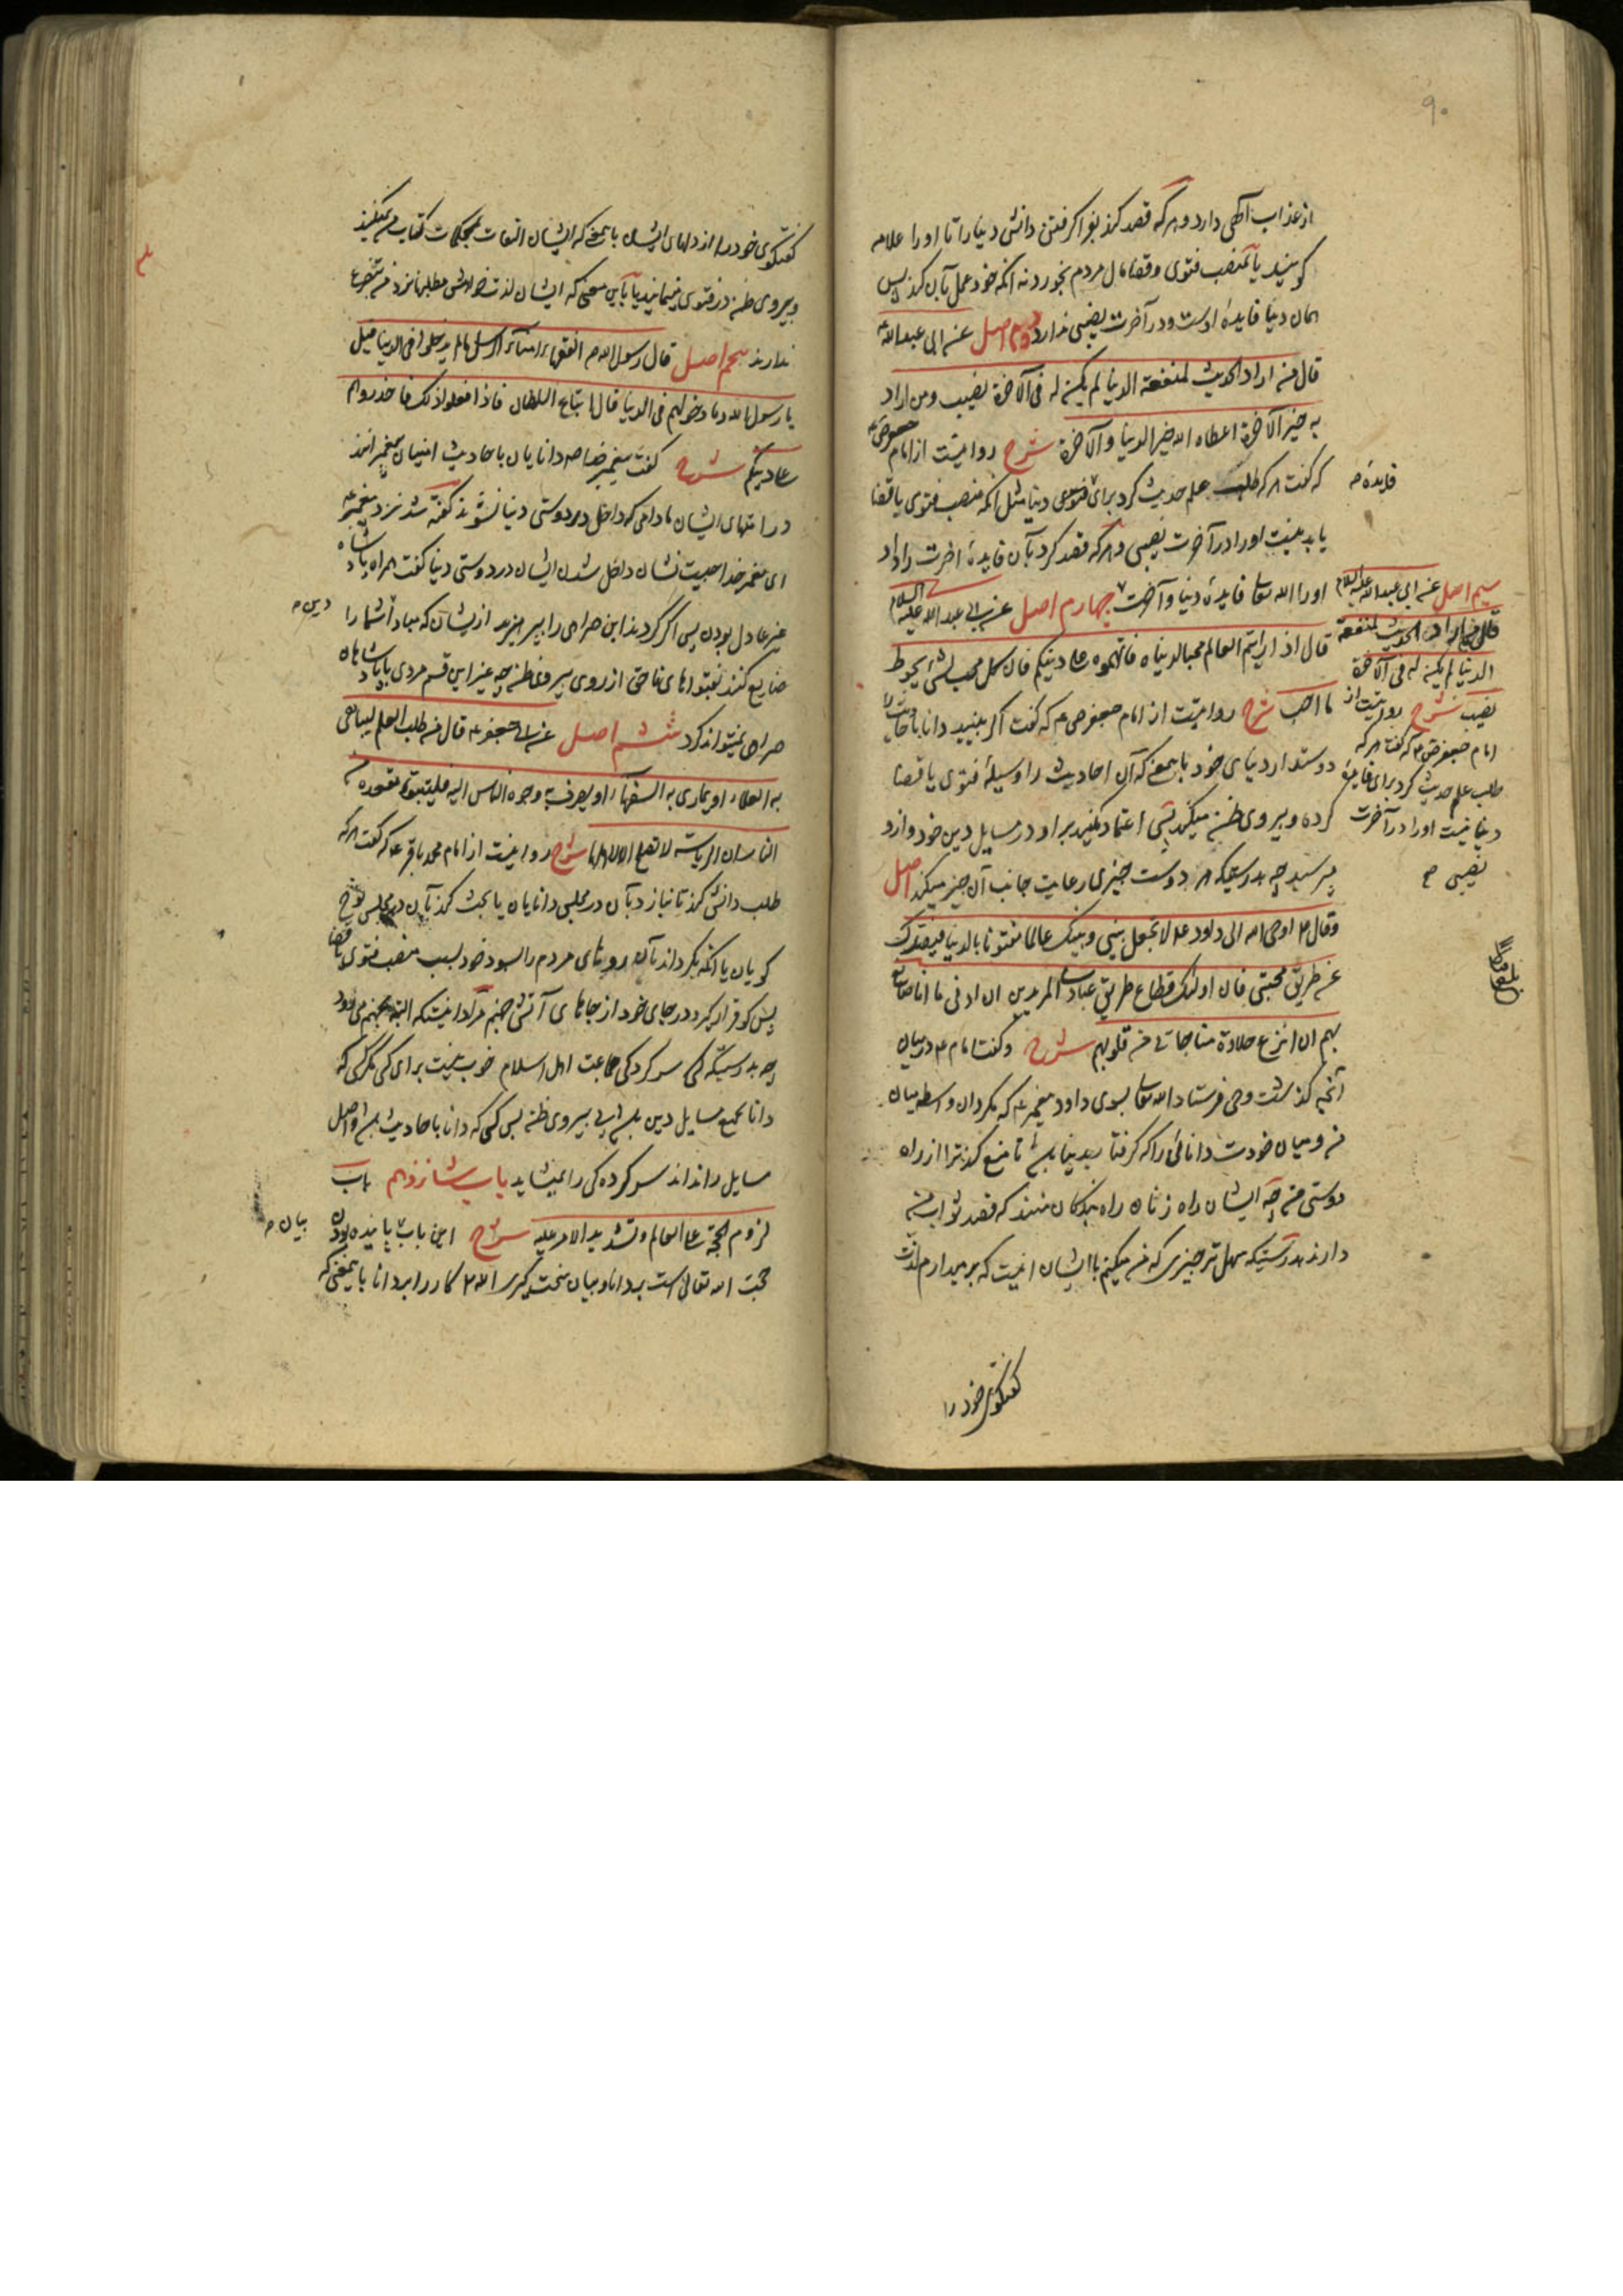 ۹۰
از عذاب آگهی دارد و هر که قصد کند بفرا گرفتن دانش دنیا را تا او را علامه
گویند یا بمنصب فتوی و قضا مال مردم بخورد نه آنکه خود عمل بآن کند پس
همان دنیا فایدهٔ اوست و در آخرت نصیبی ندارد دوم اصل عن ابی عبدالله
قال من اراد الحدیث لمنفعة الدنیا لم یکن له فی الآخرة نصیب ومن اراد
به خیر الآخرة اعطاه الله خیر الدنیا والآخرة شرح روایتست از امام جعفر ص ع
که گفت هر که طلب علم حدیث کرد برای دنیا مثل آنکه منصب فتوی یا قضا
یابد نیست او را در آخرت نصیبی و هر که قصد کرد بآن فایدهٔ آخرت را داد
او را الله تعا فایدهٔ دنیا و آخرت چهارم اصل عن ابی عبد الله علیه السلام
قال اذا رایتم العالم محبا لدنیاه فاتهموه علی دینکم فان کل محب لشئ یحوط
ما احب شرح روایتست از امام جعفر ص ع که گفت اگر ببینید دانا باحادیث را
دوستدار دنیای خود باین معنی که آن احادیث را وسیلهٔ فتوی یا قضا
کرده و پیروی ظن میکند پس اعتماد مکنید بر او در مسایل دین خود و ازو
مپرسید چه بدرستیکه هر دوست چیزی رعایت جانب آن چیز میکند اصل
وقال ع اوحی الله الی داود ع لا تجعل بینی وبینک عالما مفتونا بالدنیا فیصدک
عن طریق محبتی فان اولئک قطاع طریق عبادی المریدین ان ادنی ما انا صانع
بهم ان انزع حلاوة مناجاتی من قلوبهم شرح وگفت امام ع در بیان
آنچه گذشت وحی فرستاد الله تعا بسوی داود پیغمبر ع که مگردان واسطه میان
من و میان خودت دانائی را که گرفتار بدنیا باشد تا منع کند ترا از راه
دوستی من چه ایشان راه زنان راه بندگان منند که قصد ثواب من
دارند بدرستیکه سهل تر چیزی که من میکنم با ایشان اینست که بر میدارم لذت
گفتگوی خود را
فایده م
سیم اصل عن ابی عبد الله علیه السلام
قال من اراد الحدیث لمنفعة
الدنیا لم یکن له فی الآخرة
نصیب شرح روایتست از
امام جعفر ص ع که گفت هر که
طلب علم حدیث کرد برای فایدهٔ
دنیا نیست او را در آخرت
نصیبی
گفتگوی خود را از دلهای ایشان باین معنی که ایشان التفات بمحکمات کتاب من نمیکنند
و پیروی ظن در فتوی مینمایند یا باین معنی که ایشان لذت خواهش مطلبها نزد من بتضرع
ندارند پنجم اصل قال رسول الله ص الفقهاء امناء الرسل ما لم یدخلوا فی الدنیا قیل
یا رسول الله وما دخولهم فی الدنیا قال اتباع السلطان فاذا فعلوا ذلک فاحذروهم
علی دینکم شرح گفت پیغمبر خدا ص دانایان باحادیث امینان پیغمبرانند
در امتهای ایشان مادامی که داخل در دوستی دنیا نشوند گفته شد نزد پیغمبر ع
ای پیغمبر خدا چیست نشان داخل شدن ایشان در دوستی دنیا گفت همراه پادشاه
غیر عادل بودن پس اگر کردند این همراهی را بپرهیزید ازیشان که مبادا شما را
ضایع کنند بفتواهای ناحق از روی پیروی ظن چه غیر این قسم مردی با پادشاهان
همراهی نمیتواند کرد ششم اصل عن ابی جعفر ع قال من طلب العلم لیباهی
به العلماء او یماری به السفهاء او یصرف به وجوه الناس الیه فلیتبوء مقعده من
النار ان الریاسة لا تصلح الا لاهلها شرح روایتست از امام محمد باقر ع که گفت هر که
طلب دانش کند تا بنازد بآن در مجلس دانایان یا بحث کند بآن در مجلس پوچ
گویان یا آنکه بگرداند بآن روهای مردم را بسوی خود بسبب منصب فتوی یا قضا
پس کو قرار گیرد در جای خود از جاهای آتش جهنم مراد اینست که البته بجهنم می رود
چه بدرستیکه سرکردگی جماعت اهل اسلام خوب نیست برای کسی مگر کسی که
دانا بجمیع مسایل دین باشد بی پیروی ظن پس کسی که دانا باحادیث باشد و اصل
مسایل را نداند سرکردگی را نمیشاید باب شانزدهم باب
لزوم الحجة علی العالم وتشدید الامر علیه شرح این باب پاینده بودن
حجت الله تعالی است بر دانا و بیان سخت گیری الله تعا کار را بر دانا باین معنی که
دین م
بیان م